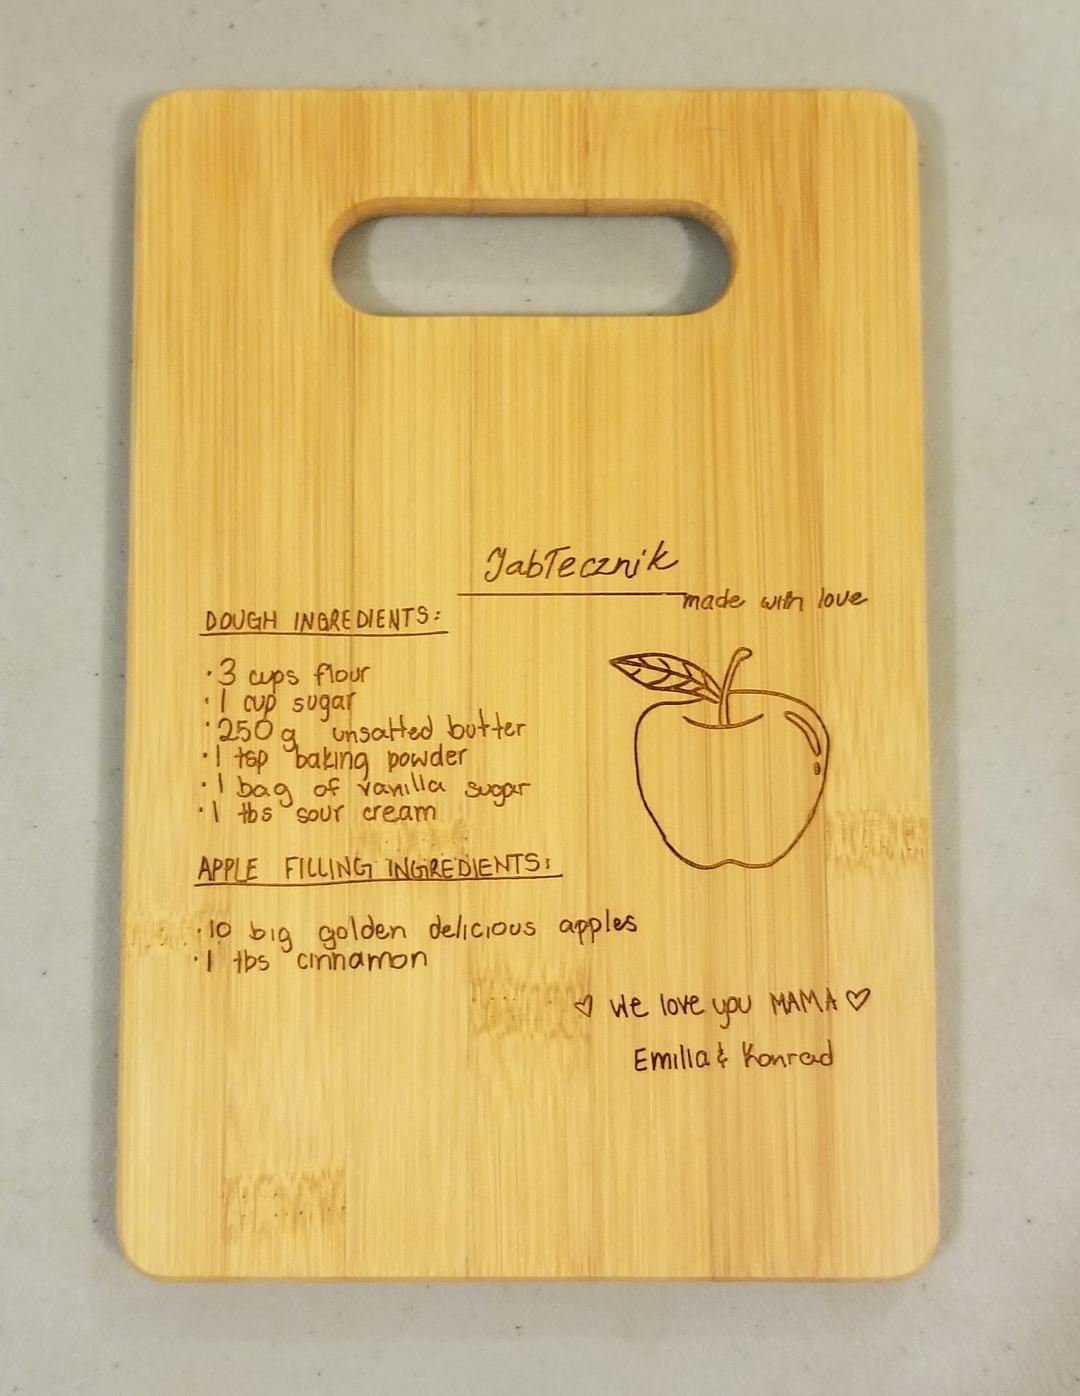 Jabłecznik
made with love
DOUGH INGREDIENTS:
· 3 cups flour
· 1 cup sugar
· 250 g unsalted butter
· 1 tsp baking powder
· 1 bag of vanilla sugar
· 1 tbs sour cream
APPLE FILLING INGREDIENTS:
· 10 big golden delicious apples
· 1 tbs cinnamon
♡ We love you MAMA ♡
Emilia & Konrad